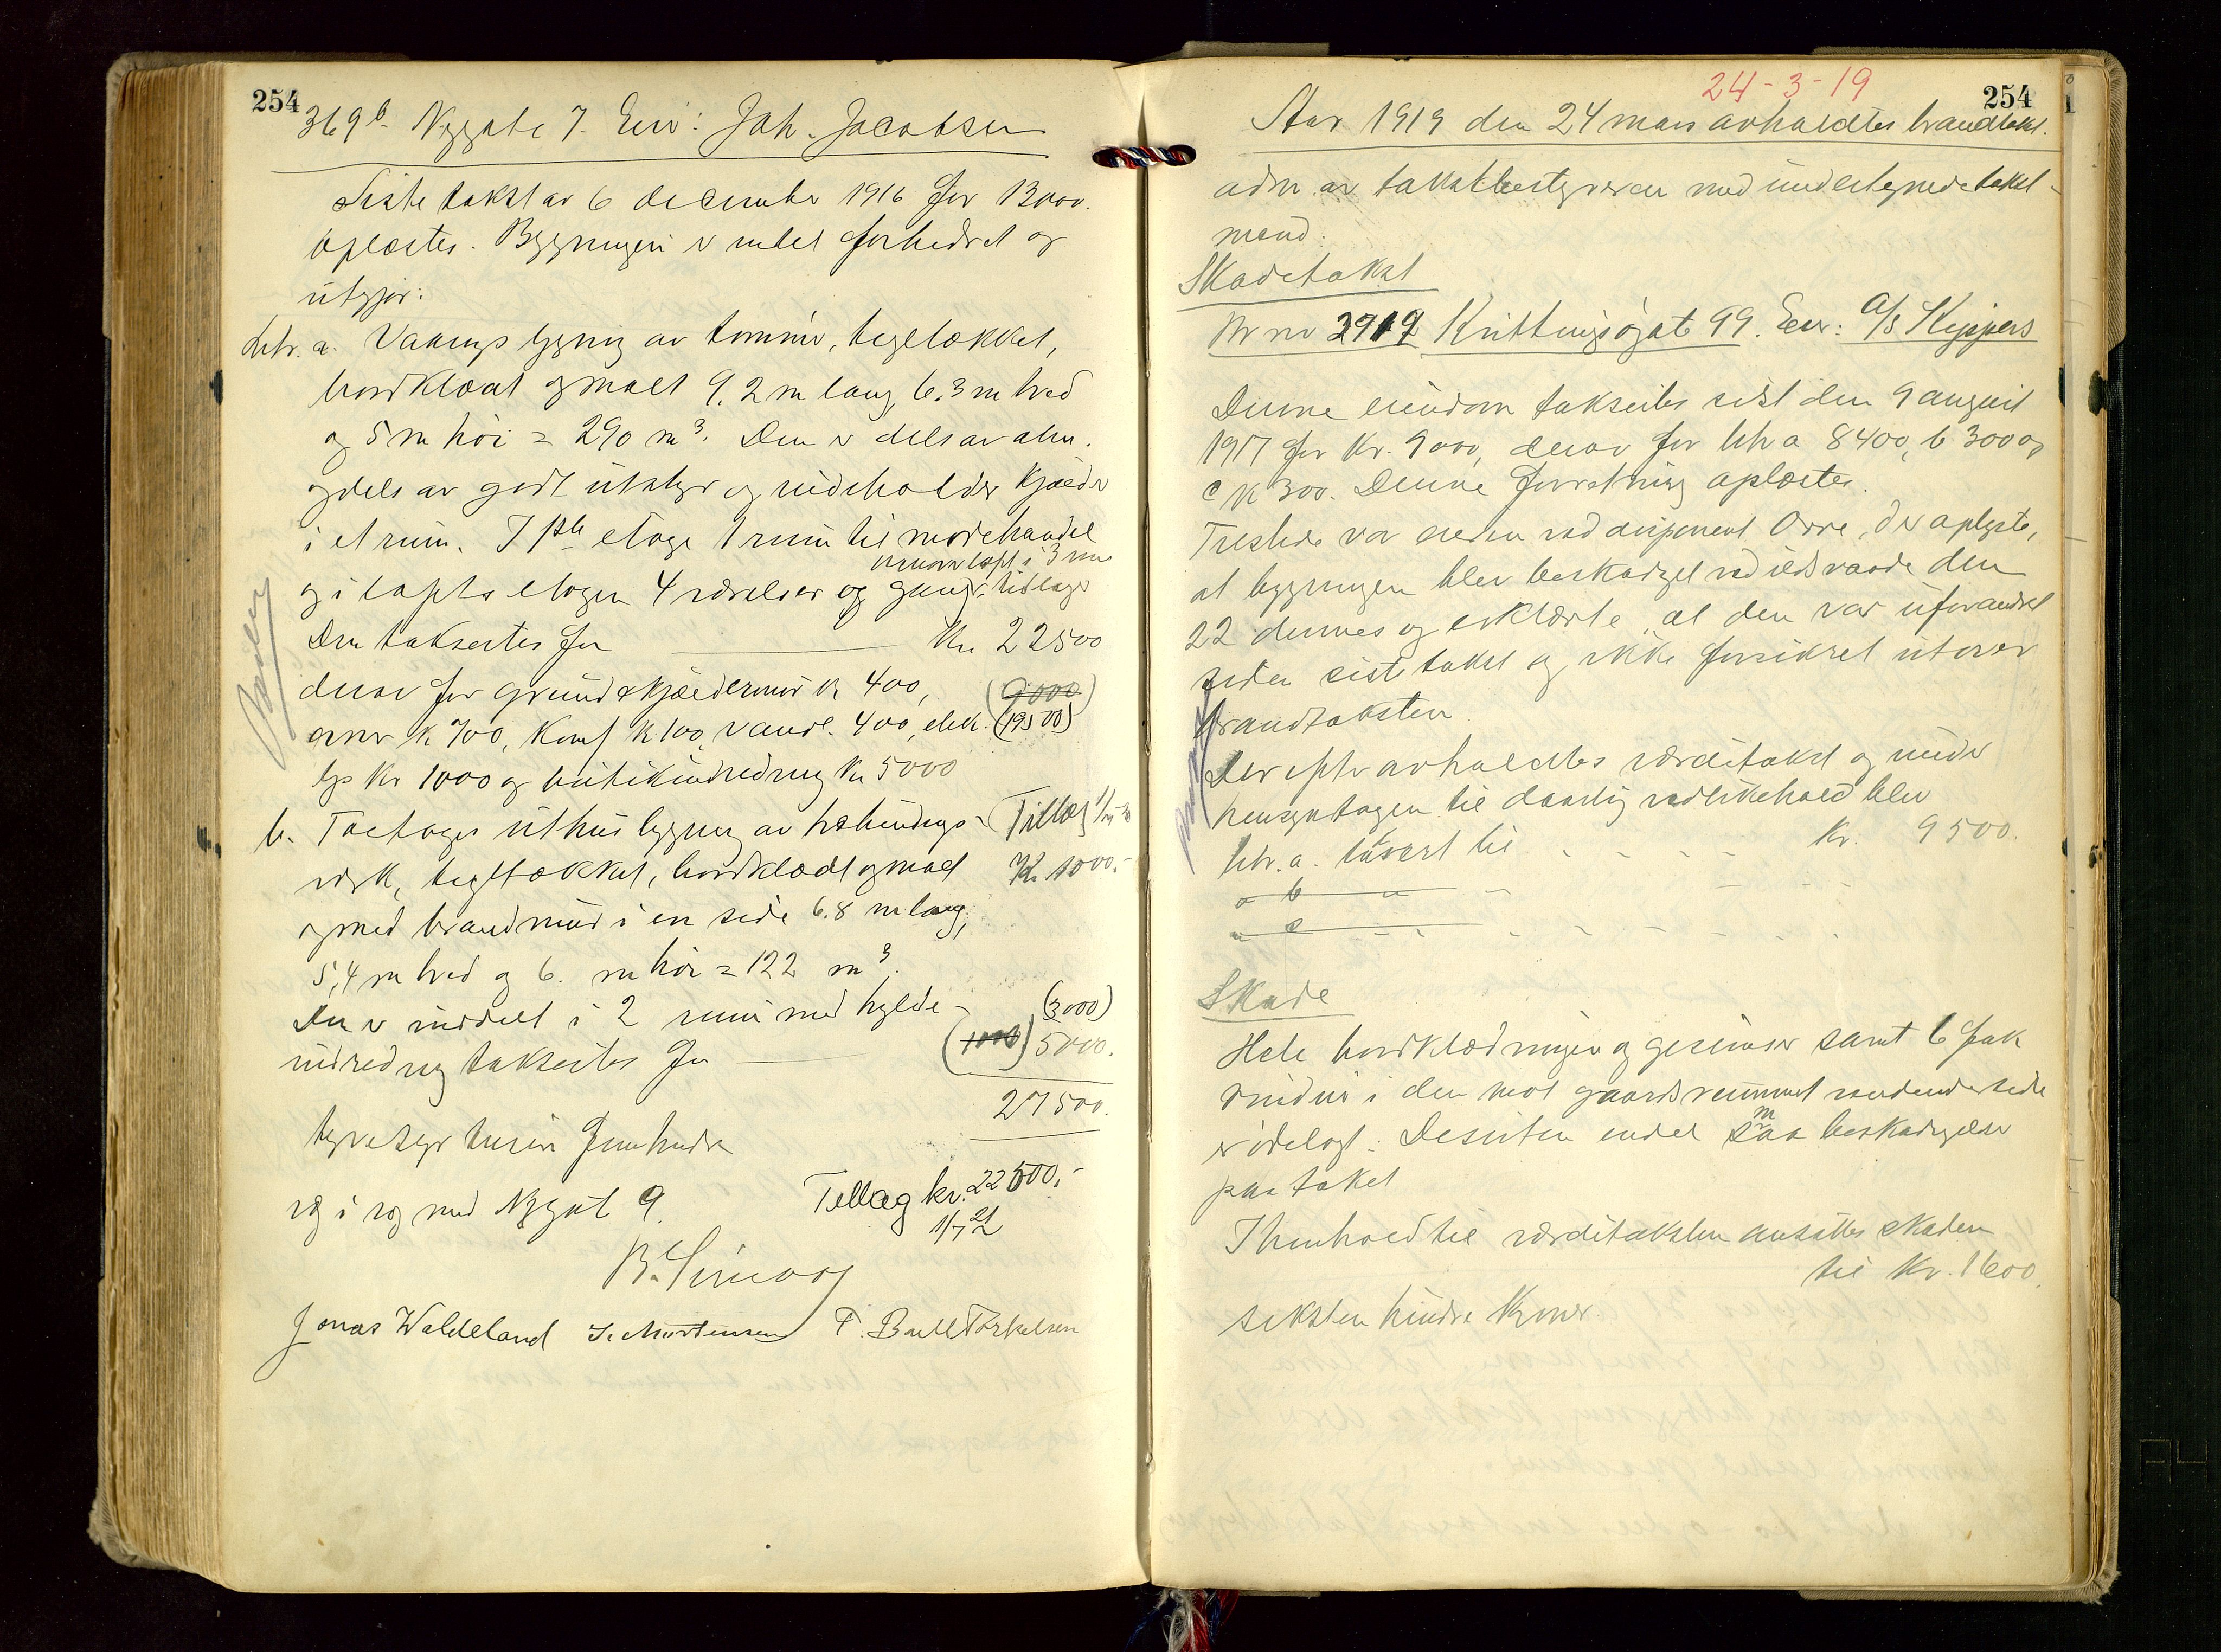 254
369b. Nygate 7. Eier: Joh. Jacobsen
Siste takst av 6 december 1916 for 13000.
oplæstes. Bygningen er endel forbedret og
utgjør:
Litr. a. Vaaningsbygning av tømmer, tegltækket,
bordklædt og malt 9.2 m lang, 6.3 m bred
og 5 m høi = 290 m³. Den er dels av alm.
og dels av godt utstyr og indeholder kjælder
i et rum. I 1ste etage 1 rum til motehandel
mørkloft i 3 rum
og i lofts etagen 4 værelser og gang. til lager
Den takseertes for Kr 22500
derav for grund & kjældermur k 400, (9000)
ovner k 700, komf k 100, vandl. 400, elek. (19500)
lys Kr 1000 og butikindredning Kr 5000
b. Toetages uthusbygning av utbindings- Tillæg
verk, tegltækket, bordklædt og malt Kr 1000.-
og med brandmur i en side 6.8 m lang,
5,4 m bred og 6. m høi = 122 m³.
(3000)
Den er inddelt i 2 rum med hylde-
indredning takseertes for (1000) 5000.
27500.
tyvesyv tusin femhundre
væg i væg med Nygat 9. Tillæg kr. 22500.-
1/7 21
Jonas Waldeland S. Mortensen T. Bull Torkelsen
24-3-19
254
Aar 1919 den 24 mars avholdtes brandtakst.
adm. av takstbestyreren med undertegnede takst-
mænd.
Skadetakst
Br nr 3919 Knittingsøgate 99. Eier: A/S Kippers
Denne eiendom takseertes sist den 9 august
1917 for Kr. 9000, derav for litr a 8400, b 300 og
c k 300. Denne forretning oplæstes.
Tilstede var eieren ved disponent Orre, der oplyste,
at bygningen blev beskadiget ved ildsvaade den
22 dennes og erklærte, at den var uforandret
siden siste takst og ikke forsikret utover
brandtaksten.
Derefter avholdtes værditakst og under
hensyntagen til daarlig vedlikehold blev
litr. a. ansat til - - - - kr. 9500.
" b " -
" c - - -
Skade
Hele bordklædningen og gesimser samt 6 fak
vinduer i den mot gaardsrummet vendende side
er ødelagt. Desuten endel smaa beskadigelser
paa taket
I henhold til værditaksten ansættes skaden
til Kr. 1600.
seksten hundre kroner.